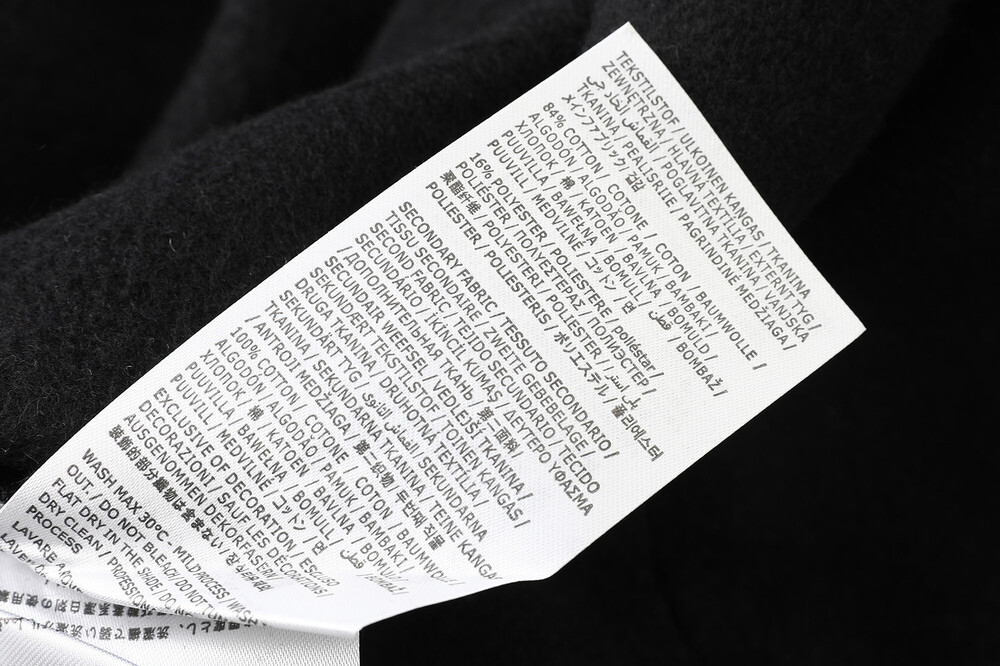 TEKSTILSTOF / ULKOINEN KANGAS / TKANINA
ZEWNĘTRZNA / HLAVNÁ TEXTÍLIA / EXTERNT TYG /
القماش الخارجي / POGLAVITNA TKANINA / VANJSKA
TKANINA / PEALISRIIE / PAGRINDINĖ MEDŽIAGA /
メインファブリック / 겉감
84% COTTON / COTONE / COTON / BAUMWOLLE /
ALGODÓN / ALGODÃO / PAMUK / ΒΑΜΒΑΚΙ /
ХЛОПОК / 棉 / KATOEN / BAVLNA / BOMULD /
PUUVILLA / BAWEŁNA / BOMULL / قطن / BOMBAŽ /
PUUVILL / MEDVILNĖ / コットン / 면
16% POLYESTER / POLIESTERE / poliéstar /
POLIÉSTER / ΠΟΛΥΕΣΤΕΡΑΣ / ПОЛИЭСТЕР /
聚酯纤维 / POLYESTERI / POLIESTER / بوليستر /
POLIESTER / POLIESTERIS / ポリエステル / 폴리에스터
SECONDARY FABRIC / TESSUTO SECONDARIO /
TISSU SECONDAIRE / ZWEITE GEBEBELAGE /
SECOND FABRIC / TEJIDO SECUNDARIO / TECIDO
SECUNDÁRIO / İKİNCİL KUMAŞ / ΔΕΥΤΕΡΟ ΥΦΑΣΜΑ
/ ДОПОЛНИТЕЛЬНАЯ ТКАНЬ / 第一面料 /
SECUNDAIR WEEFSEL / VEDLEJŠÍ TKANINA /
SEKUNDÆRT TEKSTILSTOF / TOINEN KANGAS /
DRUGA TKANINA / DRUHOTNÁ TEXTÍLIA /
SEKUNDÄRT TYG / القماش الثانوي / SEKUNDARNA
TKANINA / SEKUNDARNA TKANINA / TEINE KANGAS
/ ANTROJI MEDŽIAGA / 第一织物 / 두번째 직물
100% COTTON / COTONE / COTON / BAUMWOLLE
ALGODÓN / ALGODÃO / PAMUK / ΒΑΜΒΑΚΙ /
ХЛОПОК / 棉 / KATOEN / BAVLNA / BOMULD /
PUUVILLA / BAWEŁNA / BOMULL / قطن /
PUUVILL / MEDVILNĖ / コットン / 면
EXCLUSIVE OF DECORATION / ESCLUSO
DECORAZIONI / SAUF LES DECORATIONS /
AUSGENOMMEN DEKORFASERN /
装飾的部分織物は含まない / 장식부분제외
WASH MAX 30°C. MILD PROCESS / WASH
OUT. / DO NOT BLEACH / DO NOT TUM
FLAT DRY IN THE SHADE / DO NO
DRY CLEAN / PROFESSION
PROCESS
LAVARE A